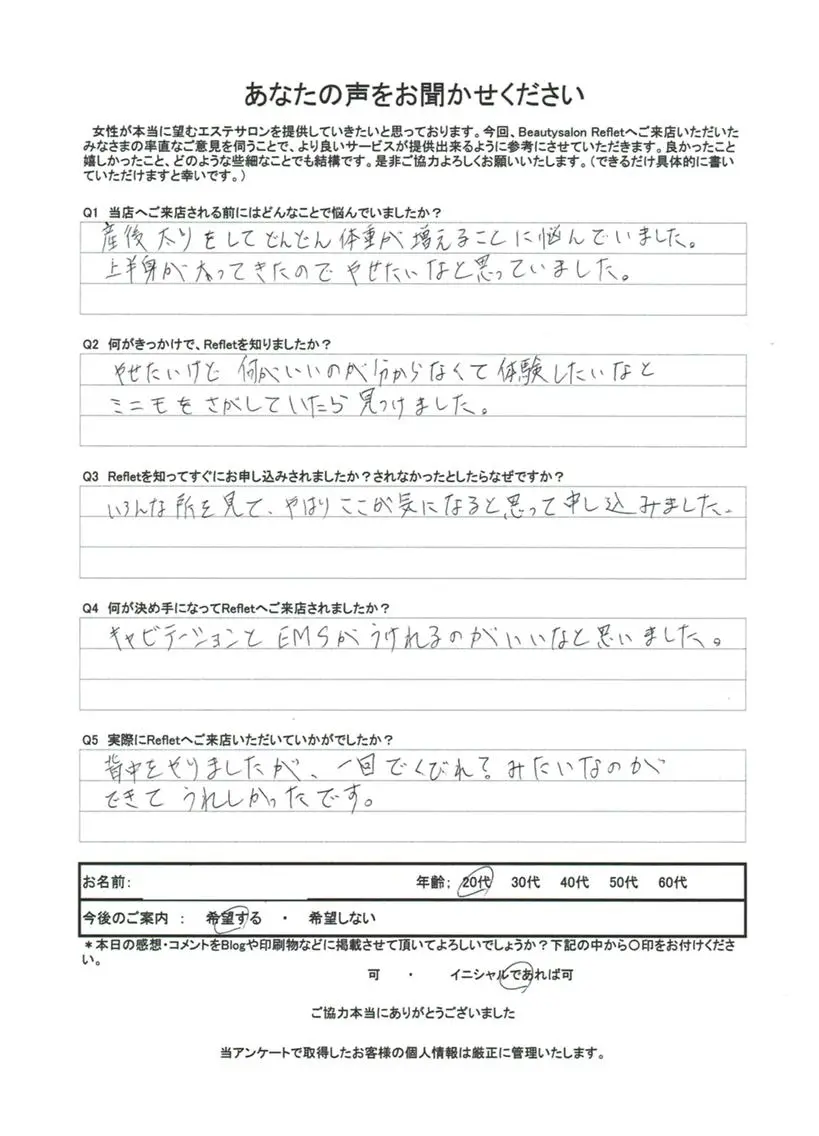 あなたの声をお聞かせください
女性が本当に望むエステサロンを提供していきたいと思っております。今回、Beautysalon Refletへご来店いただいた
みなさまの率直なご意見を伺うことで、より良いサービスが提供出来るように参考にさせていただきます。良かったこと
嬉しかったこと、どのような些細なことでも結構です。是非ご協力よろしくお願いいたします。（できるだけ具体的に書い
ていただけますと幸いです。）
Q1 当店へご来店される前にはどんなことで悩んでいましたか？
産後太りをしてどんどん体重が増えることに悩んでいました。
上半身が太ってきたのでやせたいなと思っていました。
Q2 何がきっかけで、Refletを知りましたか？
やせたいけど何がいいのか分からなくて体験したいなと
ミニモをさがしていたら見つけました。
Q3 Refletを知ってすぐにお申し込みされましたか？されなかったとしたらなぜですか？
いろんな所を見て、やはりここが気になると思って申し込みました。
Q4 何が決め手になってRefletへご来店されましたか？
キャビテーションとEMSがうけれるのがいいなと思いました。
Q5 実際にRefletへご来店いただいていかがでしたか？
背中をやりましたが、一回でくびれ？みたいなのが
できてうれしかったです。
お名前： 年齢； 20代 30代 40代 50代 60代
今後のご案内 ： 希望する ・ 希望しない
＊本日の感想・コメントをBlogや印刷物などに掲載させて頂いてよろしいでしょうか？下記の中から〇印をお付けくださ
い。
可 ・ イニシャルであれば可
ご協力本当にありがとうございました
当アンケートで取得したお客様の個人情報は厳正に管理いたします。